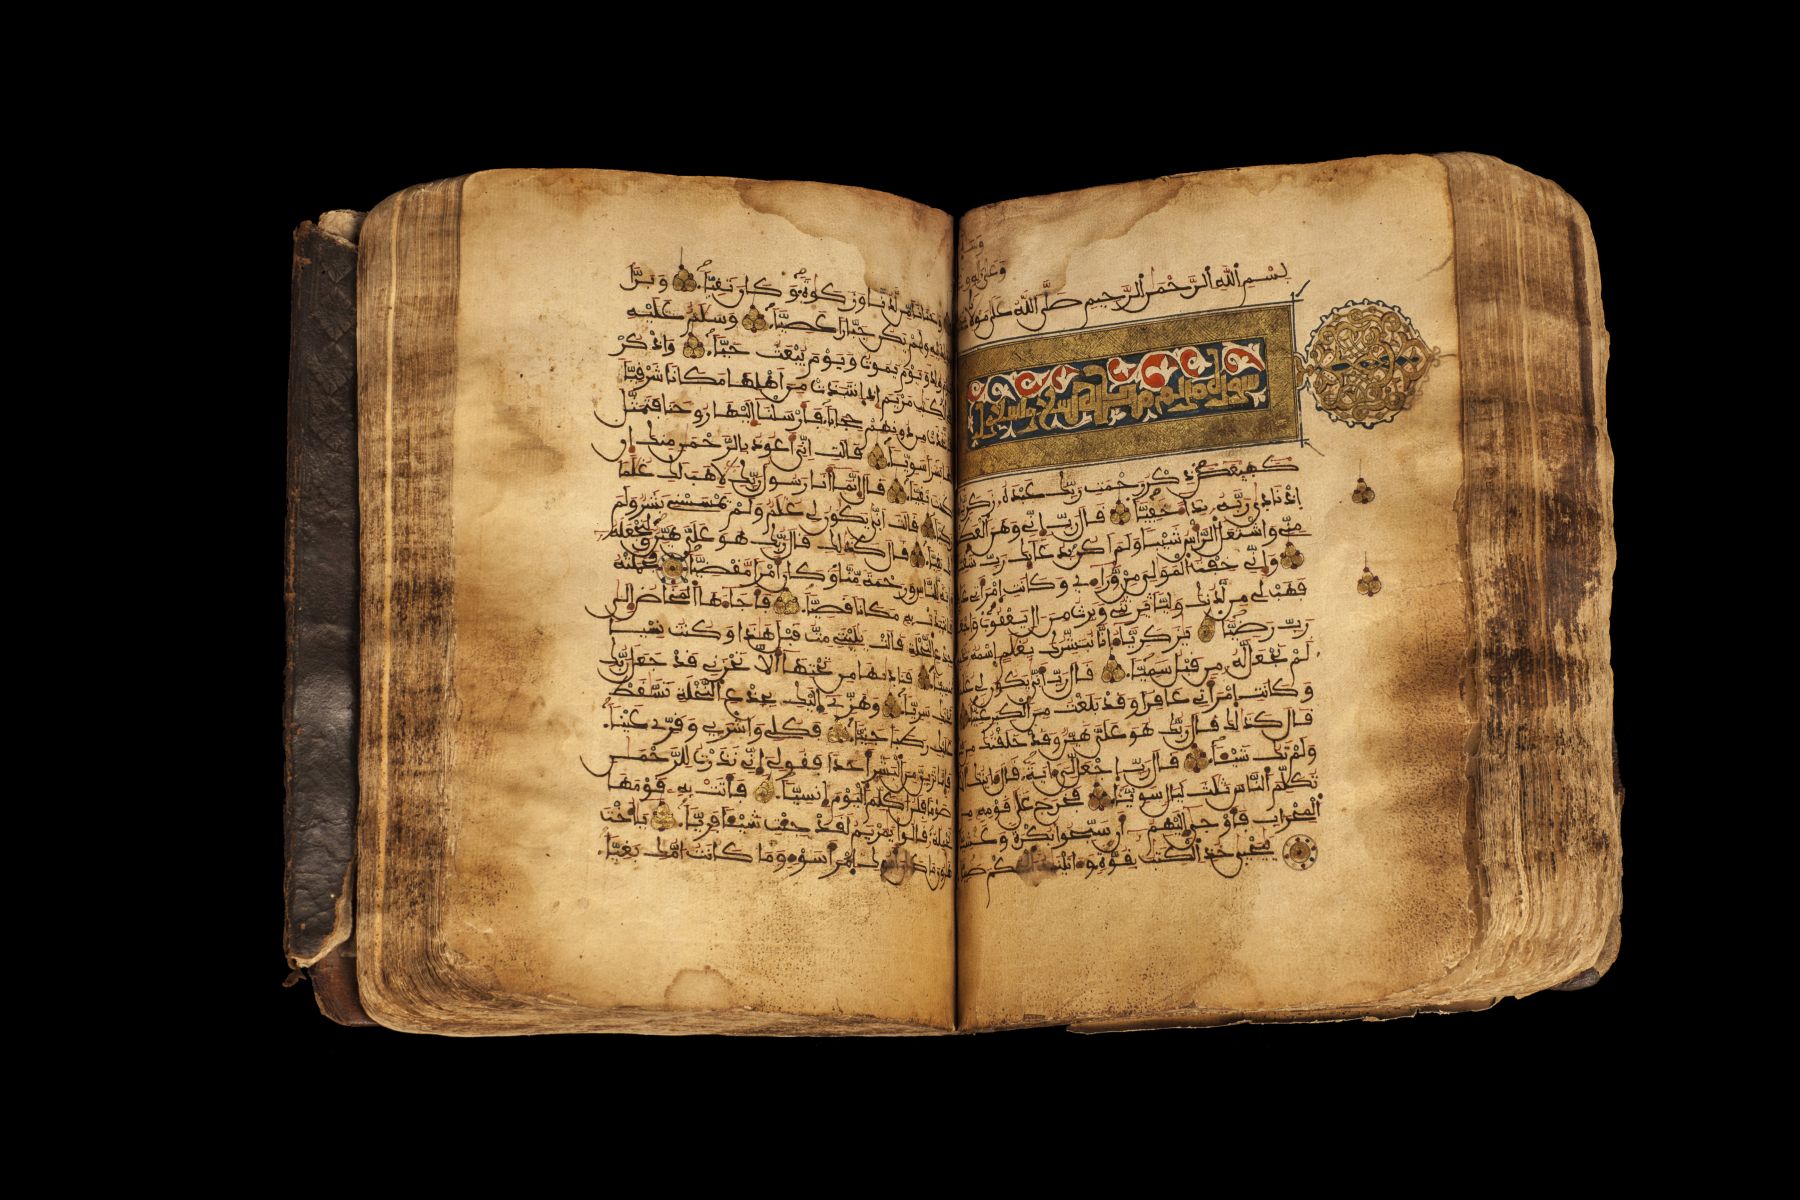 بِسْمِ اللهِ الرَّحْمٰنِ الرَّحِيمِ صَلَّى اللهُ عَلَى مَوْلَانَا
سورة مريم
كهيعص ذكر رحمت ربك عبده زكريا
اذ نادى ربه نداء خفيا قال رب اني وهن العظم
مني واشتعل الراس شيبا ولم اكن بدعائك رب شقيا
واني خفت المولي من وراءي وكانت امراتي
فهب لي من لدنك وليا يرثني ويرث من ال يعقوب واجعله
رب رضيا يزكرياء انا نبشرك بغلم اسمه
لم نجعل له من قبل سميا قال رب انى يكون لي
وكانت امراتي عاقرا وقد بلغت من الكبر عتيا
قال كذلك قال ربك هو علي هين وقد خلقتك من
ولم تك شيئا قال رب اجعل لي ءاية قال ءايتك الا
تكلم الناس ثلث ليال سويا فخرج على قومه من
المحراب فاوحى اليهم ان سبحوا بكرة وعشيا
ييحيى خذ الكتب بقوة وءاتينه الحكم صبيا
وحنانا من لدنا وزكوة وكان تقيا وبرا
بولديه ولم يكن جبارا عصيا وسلم عليه
يوم ولد ويوم يموت ويوم يبعث حيا واذكر
في الكتب مريم اذ انتبذت من اهلها مكانا شرقيا
فاتخذت من دونهم حجابا فارسلنا اليها روحنا فتمثل
لها بشرا سويا قالت اني اعوذ بالرحمن منك ان
كنت تقيا قال انما انا رسول ربك لاهب لك غلما
زكيا قالت انى يكون لي غلم ولم يمسسني بشر ولم
اك بغيا قال كذلك قال ربك هو علي هين ولنجعله
ءاية للناس ورحمة منا وكان امرا مقضيا فحملته
فانتبذت به مكانا قصيا فاجاءها المخاض الى
جذع النخلة قالت يليتني مت قبل هذا وكنت نسيا
منسيا فناديها من تحتها الا تحزني قد جعل ربك
تحتك سريا وهزي اليك بجذع النخلة تسقط
عليك رطبا جنيا فكلي واشربي وقري عينا
فاما ترين من البشر احدا فقولي اني نذرت للرحمن
صوما فلن اكلم اليوم انسيا فاتت به قومها
تحمله قالوا يمريم لقد جئت شيئا فريا ياخت
هرون ما كان ابوك امرا سوء وما كانت امك بغيا